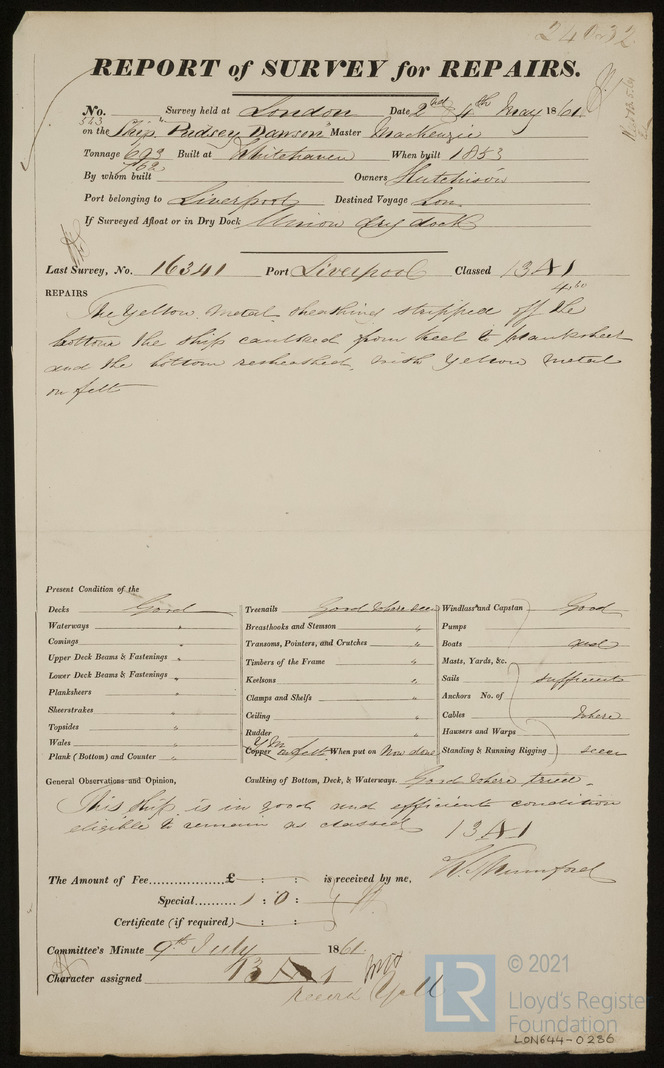 24032
REPORT of SURVEY for REPAIRS.
No. 543 Survey held at London Date, 2nd & 4th May 1861
on the Ship "Pudsey Dawson" Master Mackenzie
Tonnage 693 762 Built at Whitehaven When built 1853
By whom built Owners Hutchison
Port belonging to Liverpool Destined Voyage Lon.
If Surveyed Afloat or in Dry Dock Union dry dock
Last Survey, No. 16341 Port Liverpool Classed 13 A 1
REPAIRS
The Yellow metal sheathing stripped off the
bottom the ship caulked from keel to planksheer
and the bottom resheathed with Yellow Metal
on felt
Present Condition of the
Decks Good
Waterways "
Comings "
Upper Deck Beams & Fastenings "
Lower Deck Beams & Fastenings "
Planksheers "
Sheerstrakes "
Topsides "
Wales "
Plank (Bottom) and Counter "
Treenails Good where seen
Breasthooks and Stemson "
Transoms, Pointers, and Crutches "
Timbers of the Frame "
Keelsons "
Clamps and Shelfs "
Ceiling "
Rudder "
Copper Y M on felt When put on Now done
Windlass and Capstan Good
Pumps
Boats and
Masts, Yards, &c.
Sails sufficient
Anchors No. of
Cables where
Hawsers and Warps
Standing & Running Rigging seen
General Observations and Opinion, Caulking of Bottom, Deck, & Waterways. Good where tried.
This ship is in good and efficient condition
eligible to remain as classed 13 A 1
W. Mumford
The Amount of Fee............... £ - : - : is received by me,
Special.......... 1 : 0 :
Certificate (if required) - : - :
Committee's Minute 9th July 1861.
Character assigned 13 A 1
© 2021
LR
Lloyd's Register
Foundation
LON644-0286